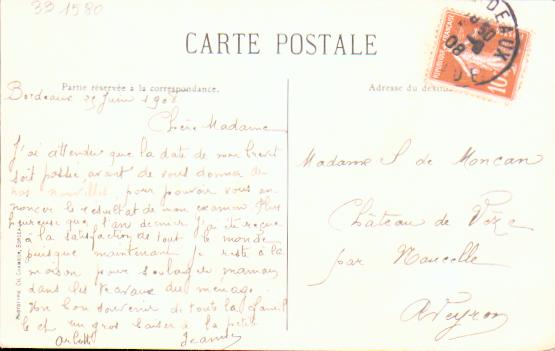 33 1580
CARTE POSTALE
Partie réservée à la correspondance.
Adresse du destina
Bordeaux 25 Juin 1908
Chère Madame
J'ai attendu que la date de mon brevet
soit passée avant de vous donner de
nos nouvelles, pour pouvoir vous an
noncer le résultat de mon examen Plus
heureuse que l'an dernier j'ai été reçue
à la satisfaction de tout le monde
puisque maintenant je reste à la
maison pour soulager maman
dans les travaux du ménage.
Un bon souvenir de toute la famille
et un gros baiser à la petite
Jeanne
Madame S de Moncan
Château de
par Naucelle
Aveyron
DEAUX
10